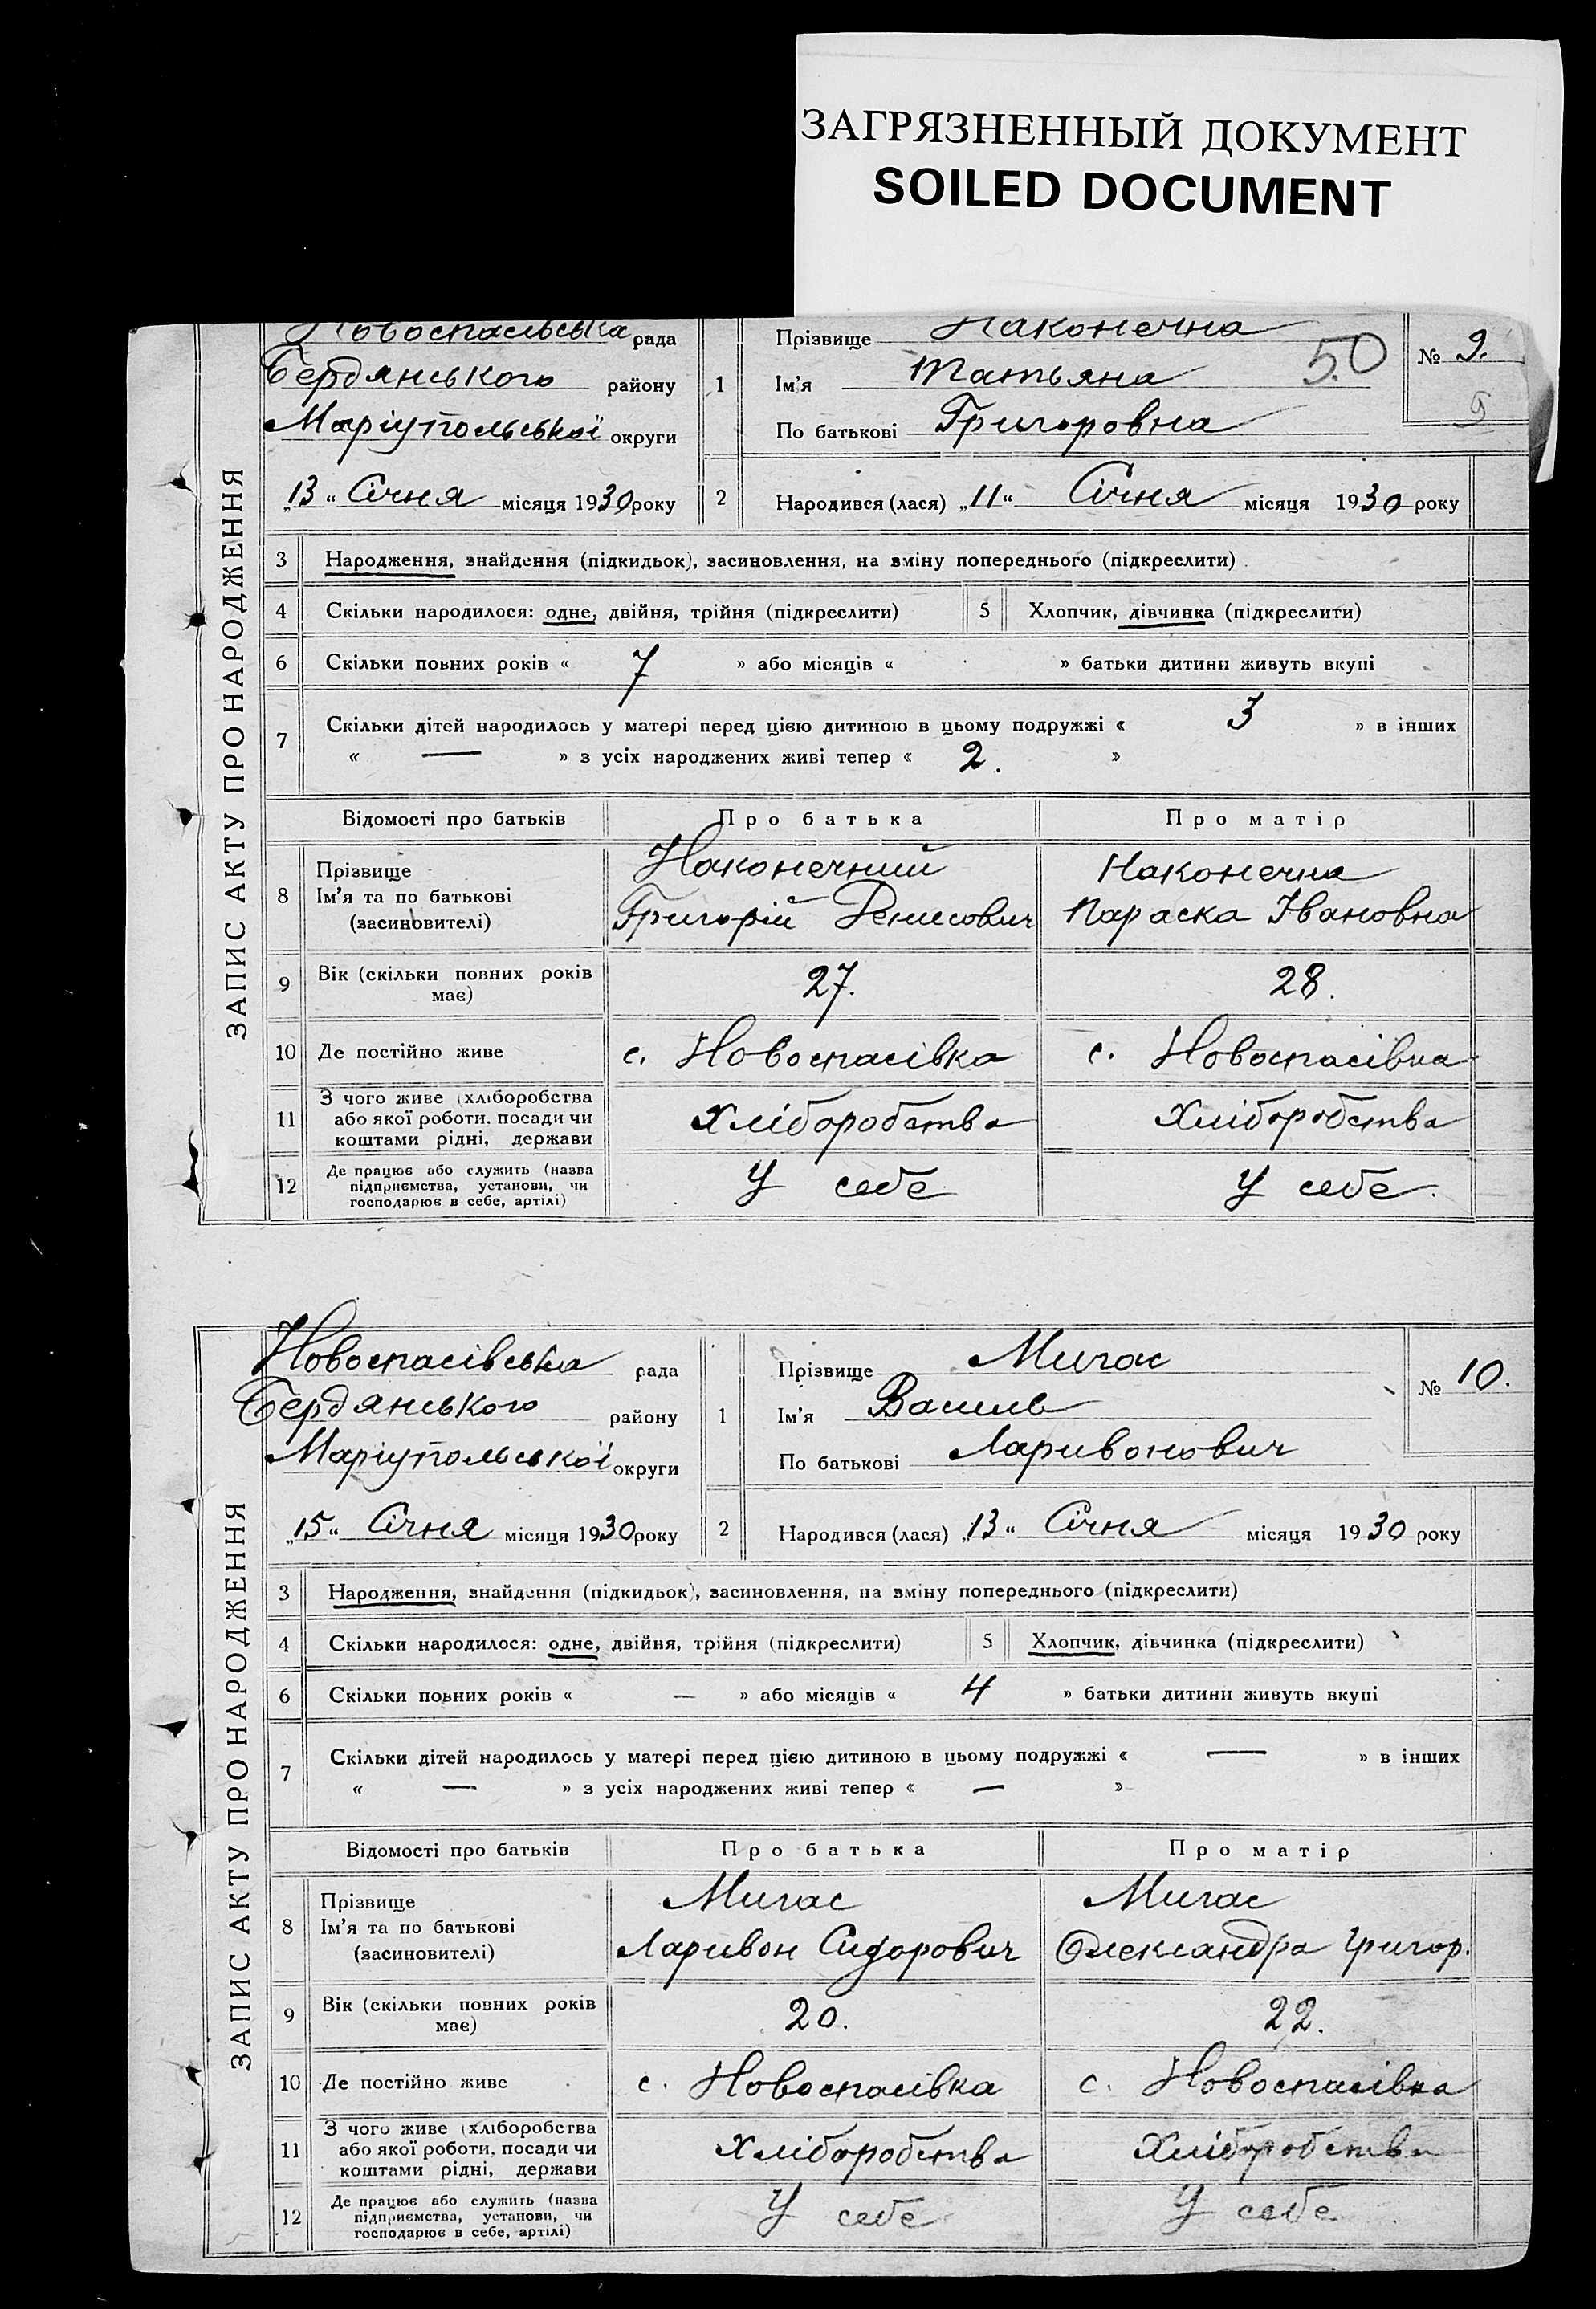 ЗАГРЯЗНЕННЫЙ ДОКУМЕНТ
SOILED DOCUMENT
ЗАПИС АКТУ ПРО НАРОДЖЕННЯ
Новоспасівська рада
Бердянського району
Маріупольської округи
„13“ Січня місяця 1930 року
1
Прізвище Наконечна
Ім’я Татьяна
По батькові Григоровна
50
№ 9.
9
2
Народився (лася) „11“ Січня місяця 1930 року
3 Народження, знайдення (підкидьок), засиновлення, на зміну попереднього (підкреслити)
4 Скільки народилося: одне, двійня, трійня (підкреслити) 5 Хлопчик, дівчинка (підкреслити)
6 Скільки повних років « 7 » або місяців « » батьки дитини живуть вкупі
7 Скільки дітей народилось у матері перед цією дитиною в цьому подружжі « 3 » в інших
« — » з усіх народжених живі тепер « 2. »
Відомості про батьків Про батька Про матір
8 Прізвище Наконечний Наконечна
Ім’я та по батькові Григорій Денисович Параска Івановна
(засиновителі)
9 Вік (скільки повних років має) 27. 28.
10 Де постійно живе с. Новоспасівка с. Новоспасівка
11 З чого живе (хліборобства
або якої роботи, посади чи Хліборобства Хліборобства
коштами рідні, держави
12 Де працює або служить (назва
підприємства, установи, чи У себе У себе.
господарює в себе, артілі)
ЗАПИС АКТУ ПРО НАРОДЖЕННЯ
Новоспасівська рада
Бердянського району
Маріупольської округи
„15“ Січня місяця 1930 року
1
Прізвище Мигас
Ім’я Василь
По батькові Ларивонович
№ 10.
2
Народився (лася) „13“ Січня місяця 1930 року
3 Народження, знайдення (підкидьок), засиновлення, на зміну попереднього (підкреслити)
4 Скільки народилося: одне, двійня, трійня (підкреслити) 5 Хлопчик, дівчинка (підкреслити)
6 Скільки повних років « — » або місяців « 4 » батьки дитини живуть вкупі
7 Скільки дітей народилось у матері перед цією дитиною в цьому подружжі « — » в інших
« — » з усіх народжених живі тепер « — »
Відомості про батьків Про батька Про матір
8 Прізвище Мигас Мигас
Ім’я та по батькові Ларивон Сидорович Олександра Григор.
(засиновителі)
9 Вік (скільки повних років має) 20. 22.
10 Де постійно живе с. Новоспасівка с. Новоспасівка
11 З чого живе (хліборобства
або якої роботи, посади чи Хліборобства Хліборобства
коштами рідні, держави
12 Де працює або служить (назва
підприємства, установи, чи У себе У себе.
господарює в себе, артілі)